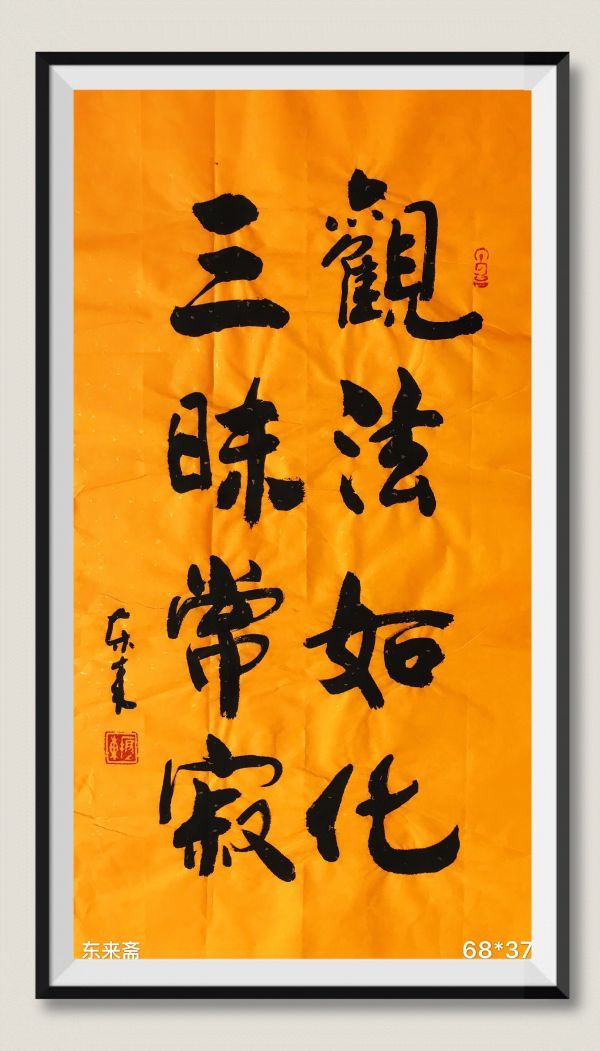 觀法如化
三昧常寂
东来
东来斋
68*37